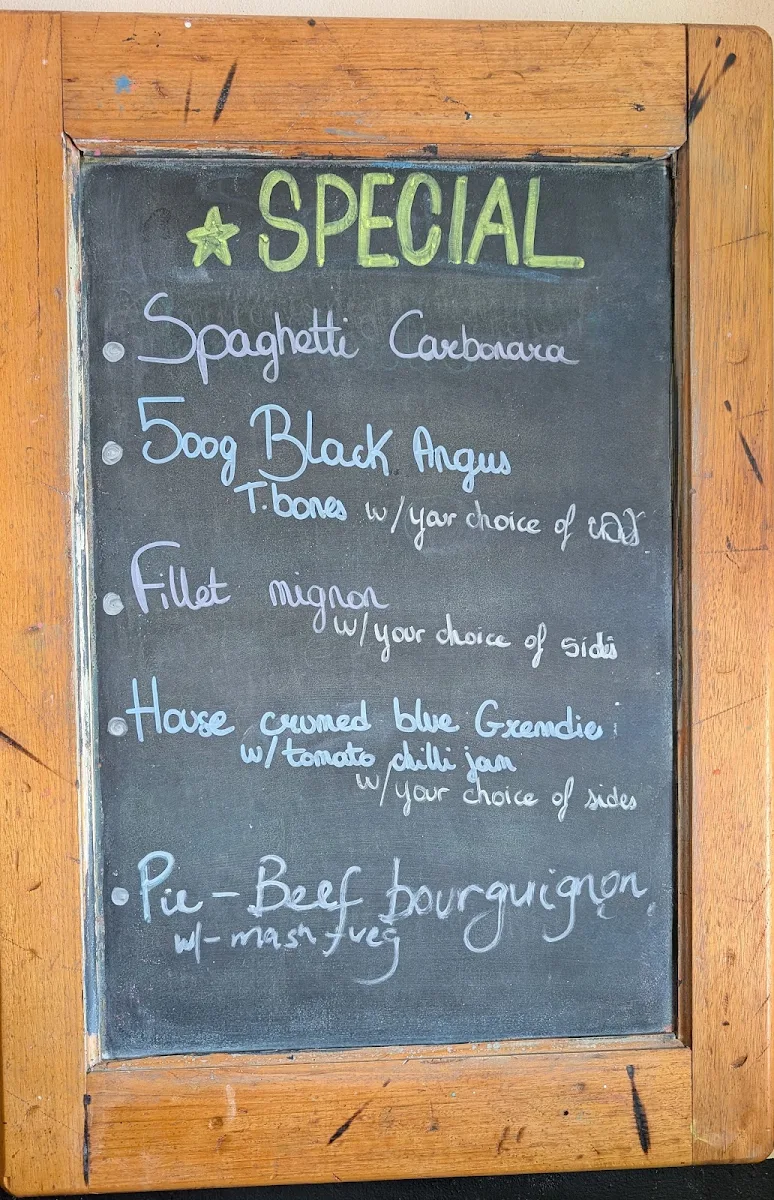 ★ SPECIAL
Spaghetti Carbonara
500g Black Angus
T.bones w/your choice of
Fillet mignon
w/your choice of sides
House crumed blue Grenadier
w/tomato chilli jam
w/your choice of sides
Pie - Beef bourguignon
w/- mash + veg